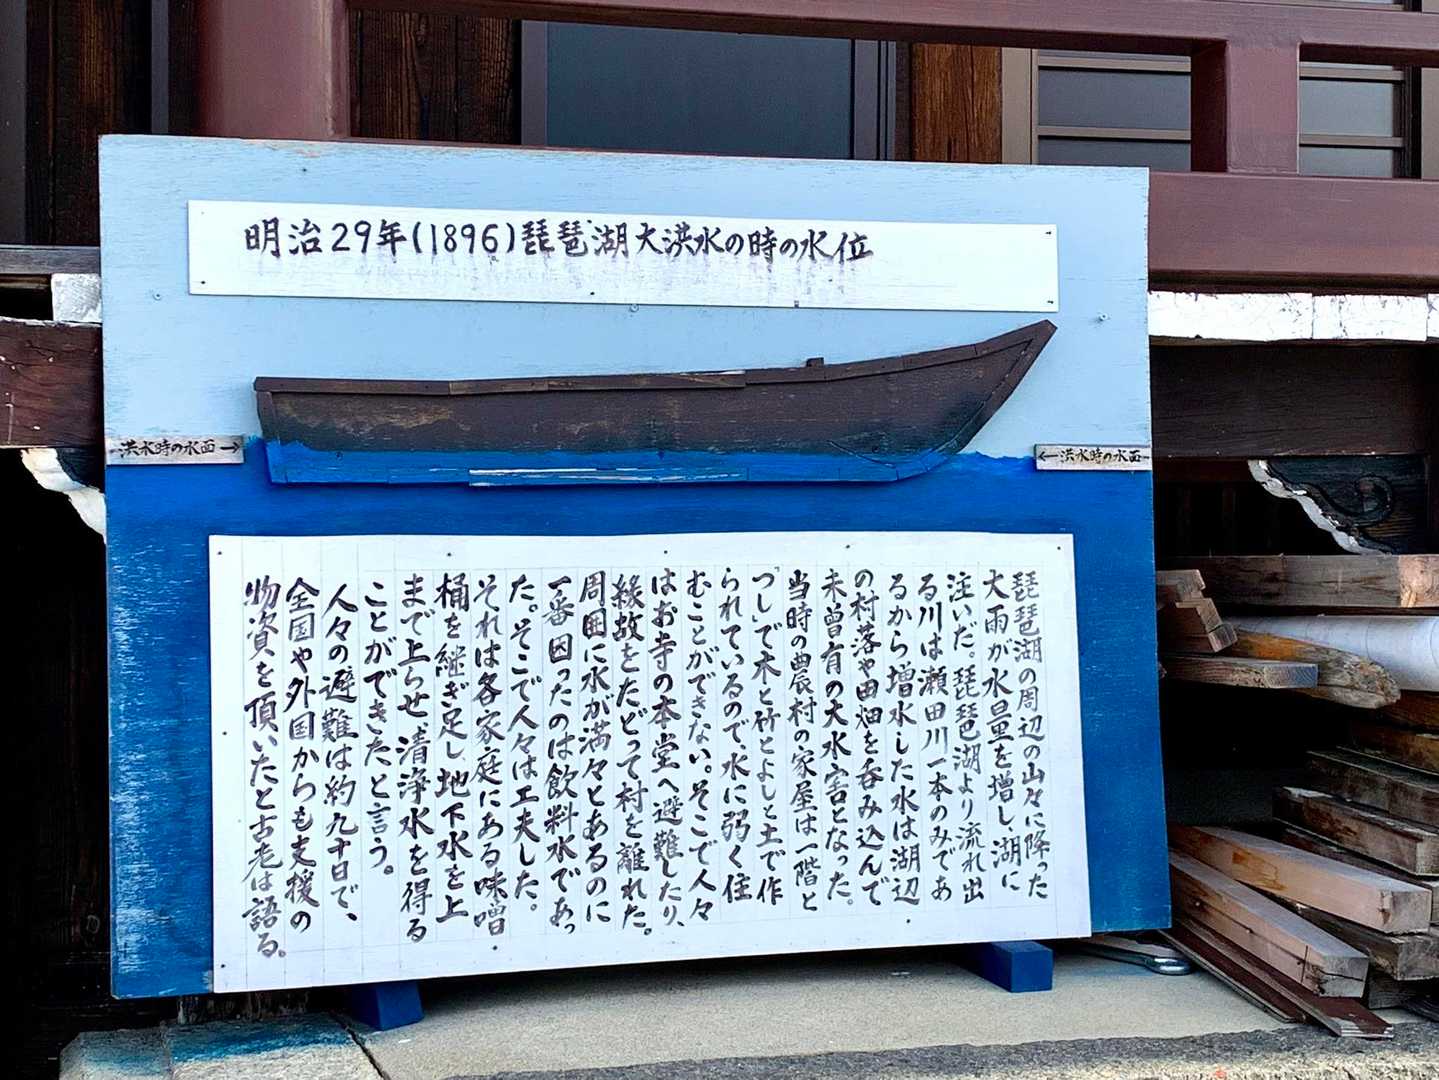 明治29年(1896)琵琶湖大洪水の時の水位
洪水時の水面→
←洪水時の水面
琵琶湖の周辺の山々に降った
大雨が水量を増し、湖に
注いだ。琵琶湖より流れ出
る川は瀬田川一本のみであ
るから増水した水は湖辺
の村落や田畑を呑み込んで
未曾有の大水害となった。
当時の農村の家屋は一階と
「つし」で木と竹とよしと土で作
られているので、水に弱く住
むことができない。そこで人々
はお寺の本堂へ避難したり、
縁故をたどって村を離れた。
周囲に水が満々とあるのに
一番困ったのは飲料水であっ
た。そこで人々は工夫した。
それは各家庭にある味噌
桶を継ぎ足し、地下水を上
まで上らせ、清浄水を得る
ことができたと言う。
人々の避難は約九十日で、
全国や外国からも支援の
物資を頂いたと古老は語る。